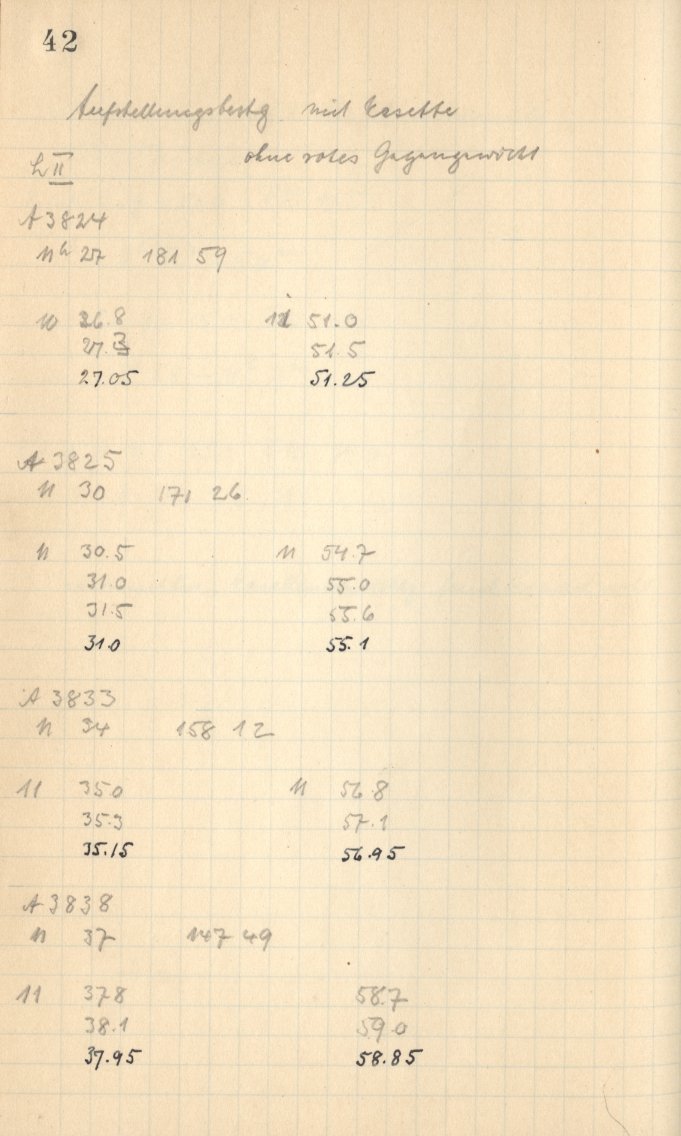 42
Aufstellungsbestg mit Casette
ohne rotes Gegengewicht
L II
A 3824
11 h 27 181 59
10 26.8 11 51.0
27.3 51.5
27.05 51.25
A 3825
11 30 171 26
11 30.5 11 54.7
31.0 55.0
31.5 55.6
31.0 55.1
A 3833
11 34 158 12
11 35.0 11 56.8
35.3 57.1
35.15 56.95
A 3838
11 37 147 49
11 37.8 58.7
38.1 59.0
37.95 58.85